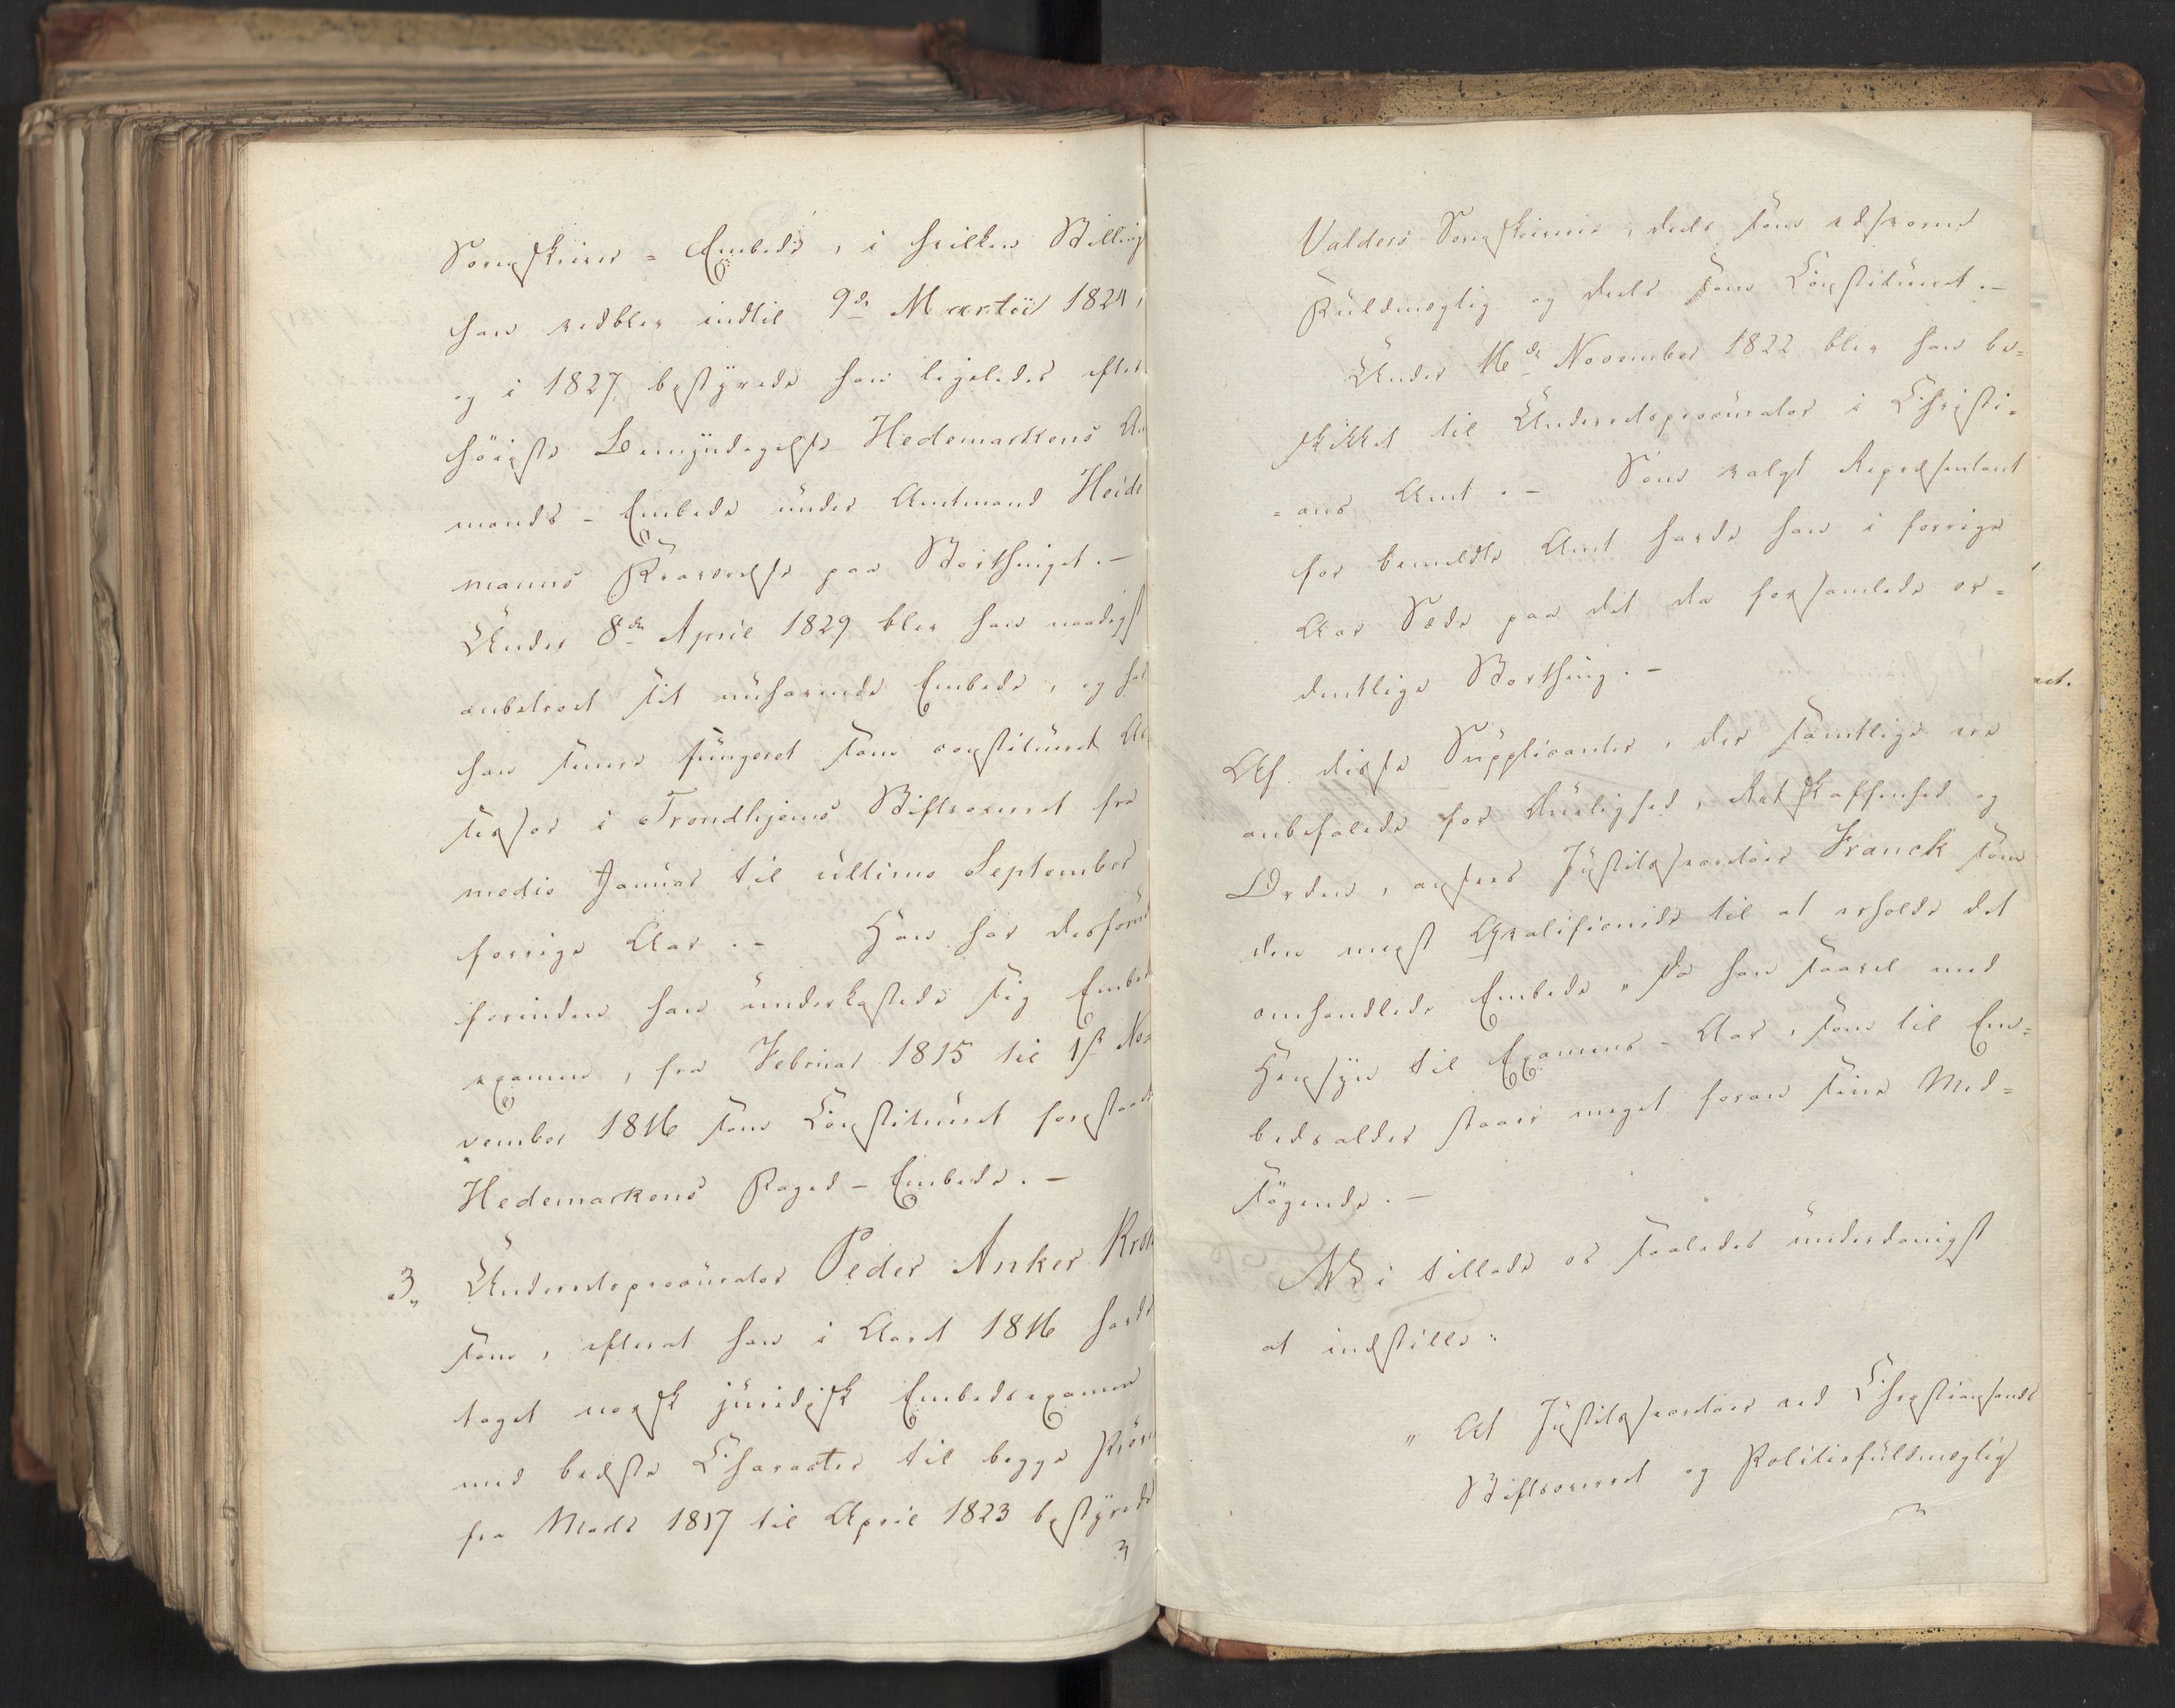 Sorenskriver-Embede, i hvilken Stilling
han vedblev indtil 9de Martii 1824,
og i 1827 bestyrede han ligeledes efter
høieste Bemyndigelse Hedemarkens
mands-Embede under Amtmand Heide
manns Fraværelse paa Storthinget.-
Under 8de April 1829 blev han naadigst
anbetroet sit nuhavende Embede, og
han senere fungeret som constitueret As
sessor i Trondhjems Stiftsoverret fra
medio Januar til ultimo September
forrige Aar.- Han har desforuden
forinden han underkastede sig Embeds
examen, fra Februar 1815 til 1ste No=
vember 1816 som Constitueret forestaaet
Hedemarkens Foged-Embede.-
3, Underretsprocurator Peder Anker
som, efterat han i Aaret 1816 havde
taget norsk juridisk Embedsexamen
med bedste Character til begge Prøver
fra Medio 1817 til April 1823 bestyrede
Valders Sorenskriverie, deels som edsvoren
Fuldmægtig og deels som Constitueret.-
Under 16de November 1822 blev han be=
skikket til Underretsprocurator i Christi=
=ans Amt.- Som valgt Repræsentant
for bemeldte Amt havde han i forrige
Aar Sæde paa det da forsamlede or=
dentlige Storthing.-
Af disse Supplicanter, der samtlige ere
anbefalede for Duelighed, Retskaffenhed og
Orden, ansees Justitssecretair Franck som
den meest Qvalificerede til at erholde det
omhandlede Embede, da han saavel med
Hensyn til Examens-Aar, som til Em=
bedsalder staaer meget foran sine Med=
søgende.-
Vi tillade os saaledes underdanigst
at indstille:
" At Justitssecretair ved Christiansands
Stiftsoverret og Politiefuldmægtig